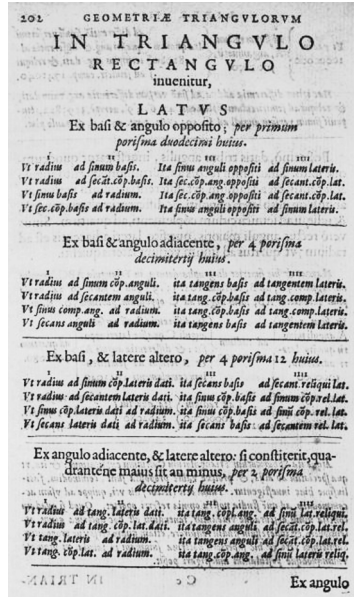 202 GEOMETRIÆ TRIANGVLORVM
IN TRIANGVLO
RECTANGVLO
invenitur,
LATVS
Ex basi & angulo opposito, per primum
porisma duodecimi huius.
I II III IIII
Vt radius ad sinum basis. Ita sinus anguli oppositi ad sinum lateris.
Vt radius ad secāt.cōp.basis. Ita sec.cōp.ang.oppositi ad secant.cōp.lat.
Vt sinu basis ad radium. Ita sec.cōp.ang.oppositi ad secant.cōp.lat.
Vt sec.cōp.basis ad radium. Ita sinus anguli oppositi ad sinum lateris.
Ex basi & angulo adiacente, per 4 porisma
decimitertij huius.
I II III IIII
Vt radius ad sinum cōp.anguli. ita tangens basis ad tangentem lateris.
Vt radius ad secantem anguli. ita tang.cōp.basis ad tang.comp.lateris.
Vt sinus comp.ang. ad radium. ita tang.cōp.basis ad tang.comp.lateris.
Vt secans anguli ad radium. ita tangens basis ad tangentem lateris.
Ex basi, & latere altero, per 4 porisma 12 huius.
I II III IIII
Vt radius ad sinum cōp.lateris dati. ita secans basis ad secant.reliqui lat.
Vt radius ad secantem lateris dati. ita sinus cōp.basis ad sinum cōp.rel.lat.
Vt sinus cōp.lateris dati ad radium. ita sinus cōp.basis ad sinū cōp.rel.lat.
Vt secans lateris dati ad radium. ita secans basis ad secantem rel.lat.
Ex angulo adiacente, & latere altero: si constiterit, qua-
drantēne maius sit an minus, per 2 porisma
decimitertij huius.
I II III IIII
Vt radius ad tang.lateris dati. ita tang.cōpl.ang. ad sinū lat.reliqui.
Vt radius ad tang.cōp.lat.dati. ita tangens anguli ad secāt.cōp.lat.rel.
Vt tang.lateris ad radium. ita tangens anguli ad secāt.cōp.lat.rel.
Vt tang.cōp.lat. ad radium. ita tang.cōp.ang. ad sinū lateris reliq.
C c Ex angulo